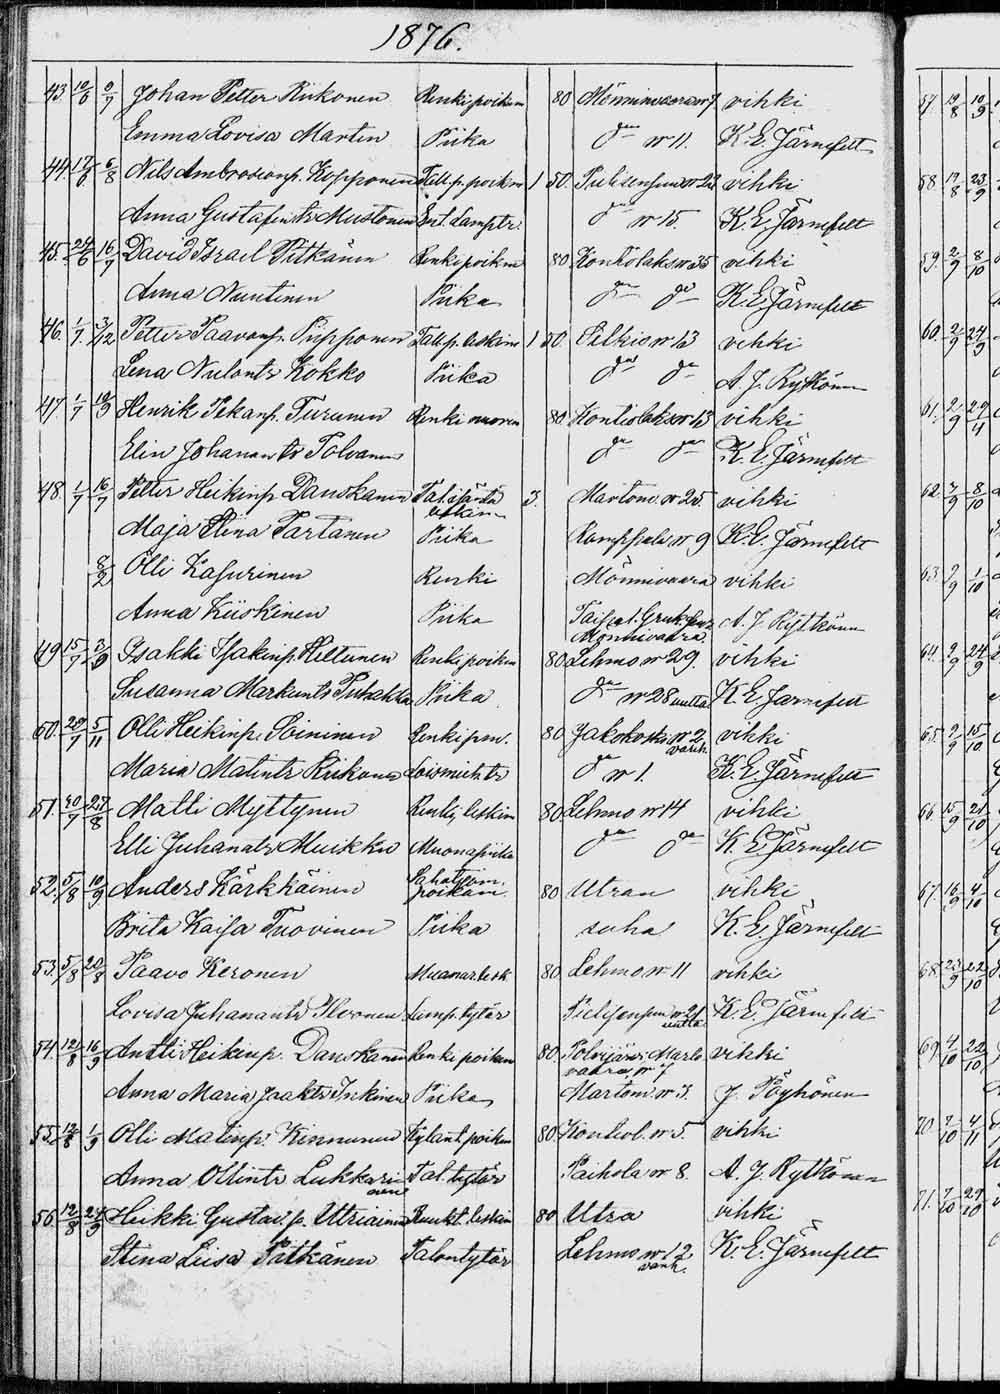 1876.
43. 10/6 9/7 Johan Petter Rinkonen Renki poikm 80 Mönninvaara nr 7 vihki
Emma Lovisa Martin Piika d:o nr 11. K. E. Järnefelt
44. 17/6 6/8 Nils Ambrosionp. Kopponen Tall. p. poikm 1 50. nr 22 vihki
Anna Gustafintr Mustonen d:o nr 15. K. E. Järnefelt
45. 24/6 16/7 David Israel Pitkänen Renki poikm 80 Konttolaks nr 35 vihki
Anna Nuutinen Piika d:o d:o K. E. Järnefelt
46. 1/7 3/12 Petter Paavonp. Piipponen Tall p. leskim 1 50. Selkie nr 13 vihki
Lena Nulontr Kokko Piika d:o d:o A. J. Rytkönen
47. 1/7 10/9 Henrik Pekanp. Turunen Renki nuorin 80 Kontiolaks nr 13 vihki
Elin Johanantr Tolvanen d:o d:o K. E. Järnefelt
48. 1/7 16/7 Petter Heikinp. Danskanen Tal. isäntä 3. Marton. nr 25 vihki
leskim
Maja Stina Partanen Piika nr 9 K. E. Järnefelt
8/2 Olli Kasurinen Renki Mönnivaara vihki
Anna Kiiskinen Piika A. J. Rytkönen
Mönnivaara
49 15/7 3/9 Isakki Isakinp. Hiltunen Renki poikm 80 Lehmo nr 29. vihki
Susanna Markuntr Puhakka Piika d:o nr 28 uutta K. E. Järnefelt
50. 29/7 5/11 Olli Heikinp. Soininen Renki pm. 80 Jakokoski nr 2 vihki
vanh.
Maria Matintr Rinkonen Loismiehtr d:o nr 1. K. E. Järnefelt
51. 30/7 27/8 Matti Myttynen Renki, leskim 80 Lehmo nr 14 vihki
Elli Juhanatr Muikku Muonapiika d:o d:o K. E. Järnefelt
52. 5/8 10/9 Anders Kärkkäinen Sahatyöm. poikam. 80 Utran vihki
Brita Kaisa Tuovinen Piika saha K. E. Järnefelt
53. 5/8 20/8 Paavo Keronen Muonar. lesk 80 Lehmo nr 11 vihki
Lovisa Juhanantr Ilvonen Lamp. tytär nr 21 K. E. Järnefelt
uutta
54. 12/8 16/9 Antti Heikinp. Danskanen Renki poikam 80. Polvijärvi; Marto vihki
vaara, nr 7
Anna Maria Jaaktr Inkinen Piika Marton. nr 3. J. Pöyhönen
55. 12/8 1/9 Olli Matinp. Kinnunen poikm 80. Kontiol. nr 5. vihki
Anna Ollintr Lukkari Tal. tytär Paihola nr 8. A. J. Rytkönen
nen
56. 12/8 24/9 Heikki Gustav. p. Utriainen leskim 80 Utra vihki
Stina Liisa Pitkänen Talontytär Lehmo nr 12 K. E. Järnefelt
vanh.
57. 19/8 10/9
58 19/8 23/9
59. 2/9 8/10
60. 2/9 24/9
61. 2/9 29/4
62. 2/9 8/10
63. 9/9 1/10
64. 9/9 24/9
65. 9/9 15/10
66. 15/9 21/10
67. 16/9 4/10
68. 23/9 22/10
69. 4/10 22/10
70. 7/10 4/11
71. 7/10 29/10